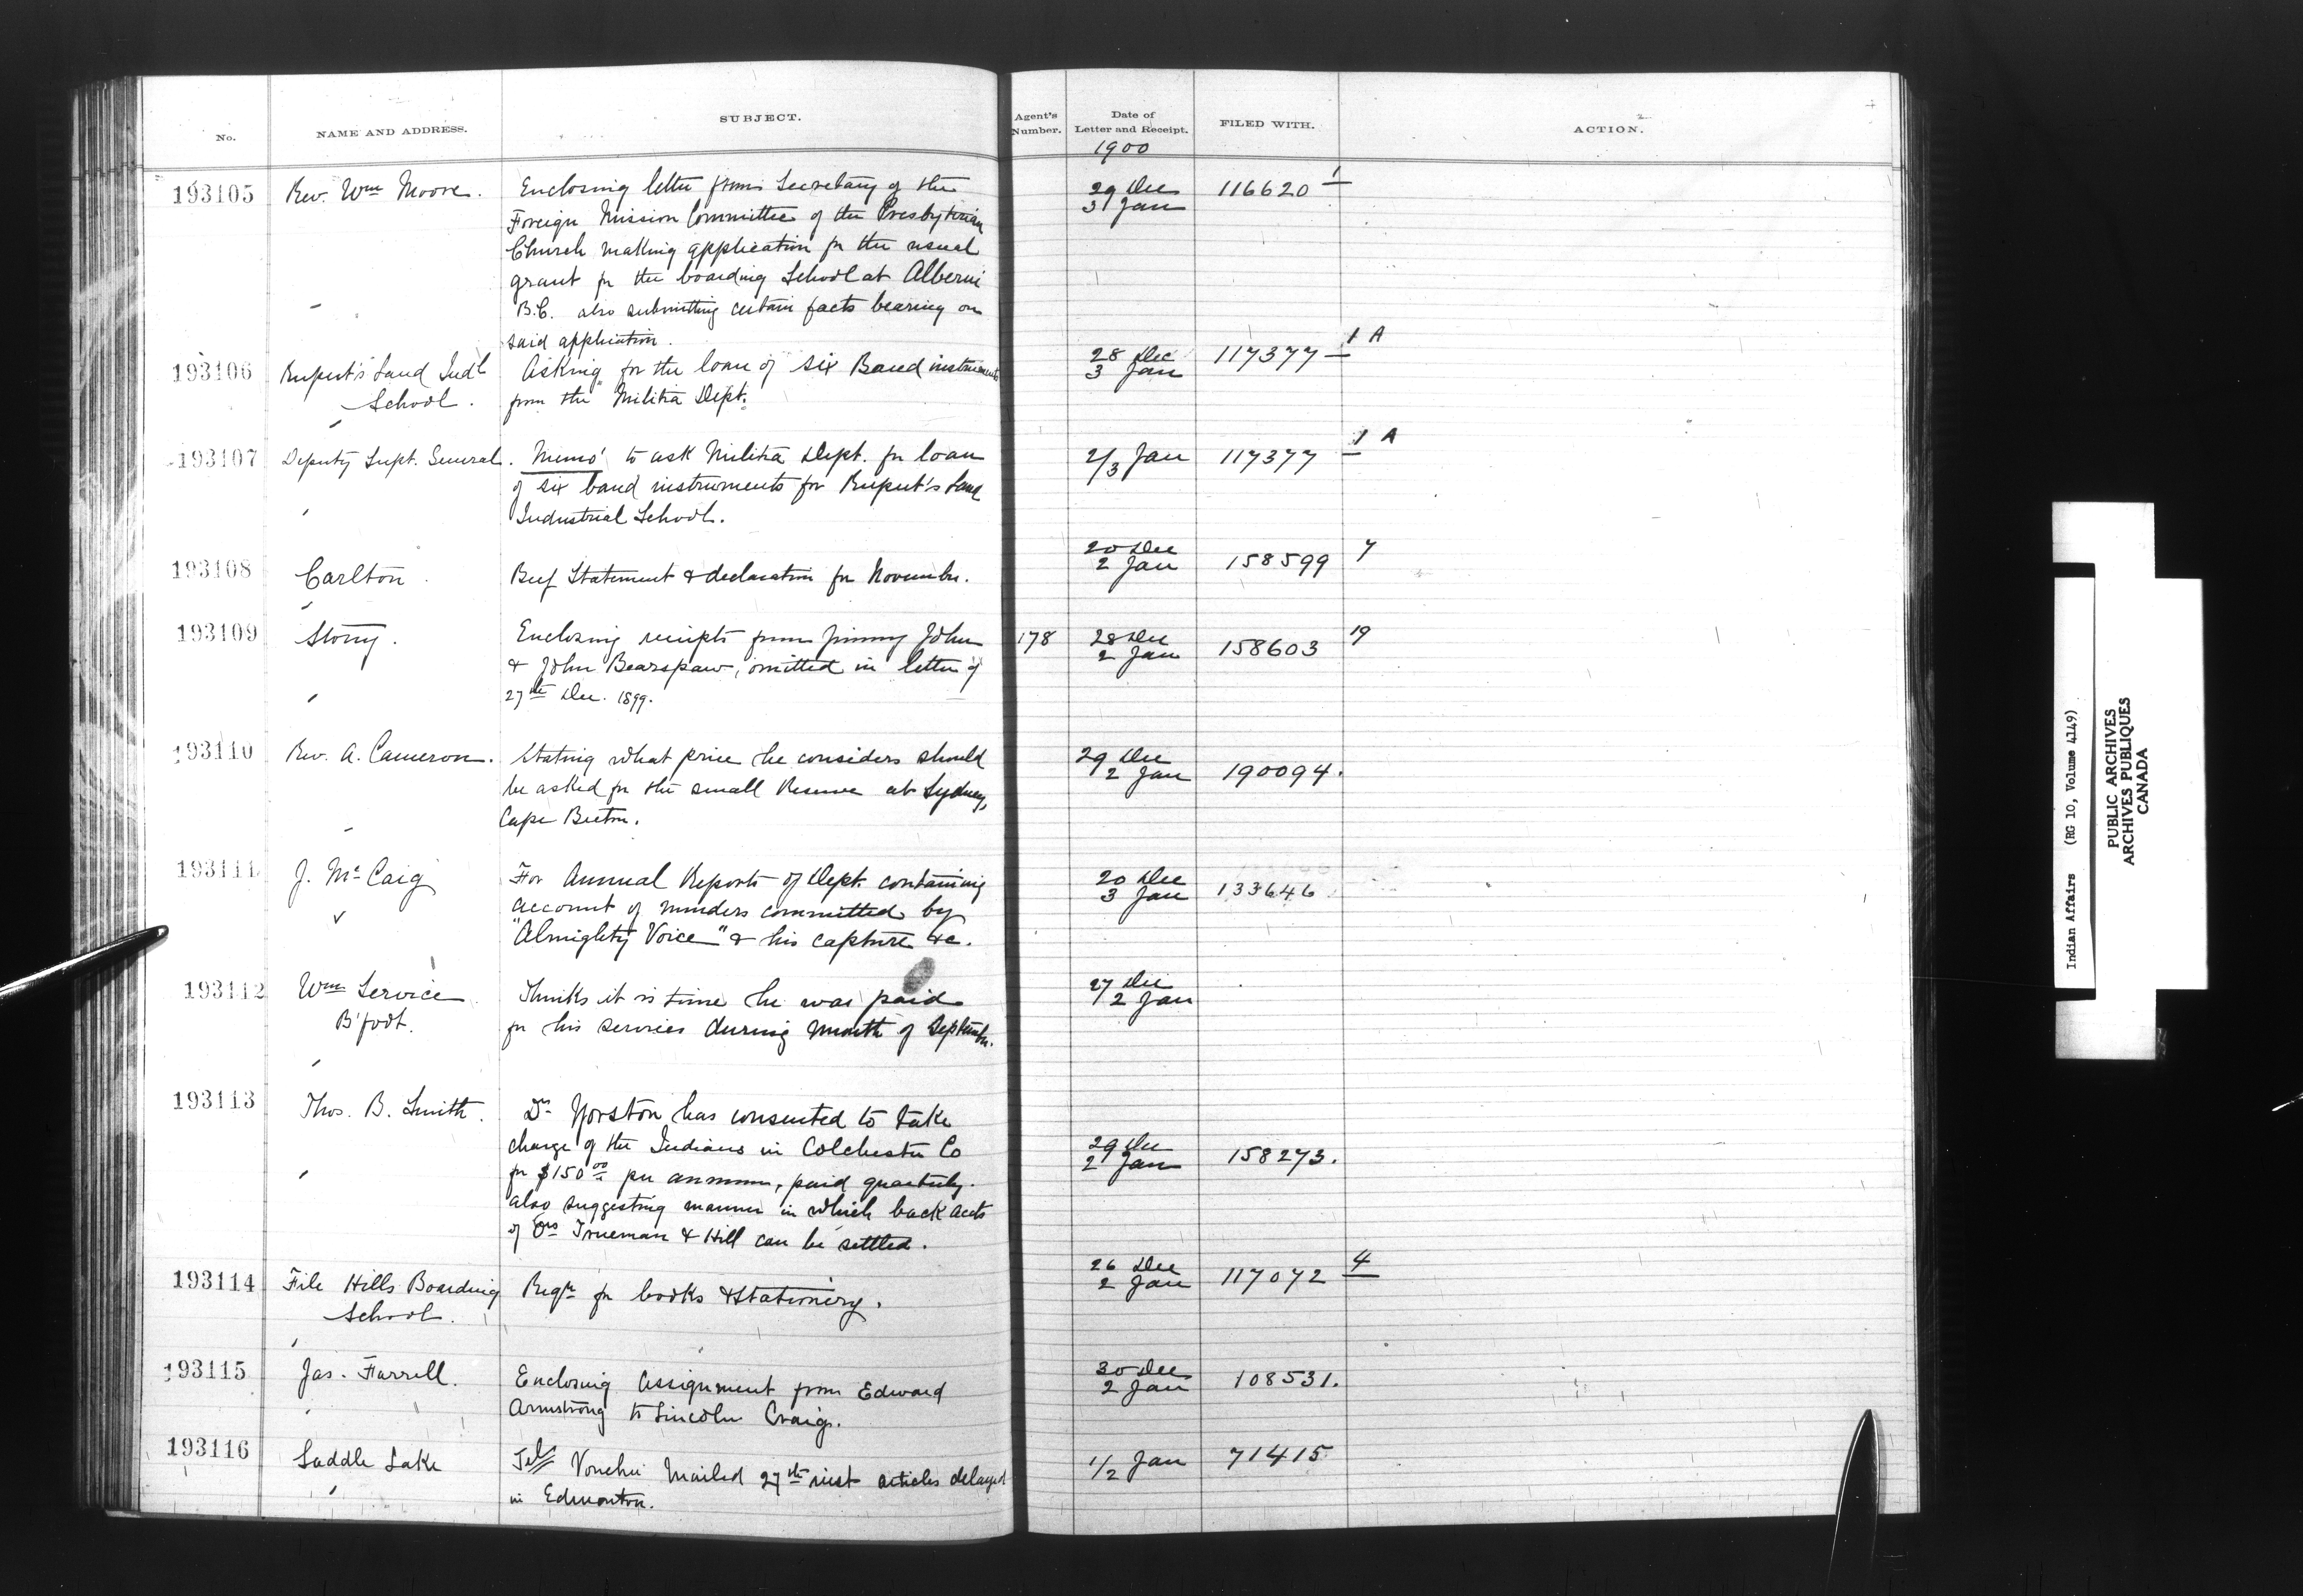 No.
NAME AND ADDRESS.
SUBJECT.
Agent's Number.
Date of Letter and Receipt.
FILED WITH.
ACTION.
1900
193105
Rev. Wm Moore.
Enclosing letter from Secretary of the
Foreign Mission Committee of the Presbyterian
Church making application for the usual
grant for the boarding School at Alberni
B.C. also submitting certain facts bearing on
said application.
29 Dec
3 Jan
116620 1
193106
Rupert's Land Indl
School.
Asking for the loan of six Band instruments
from the Militia Dept.
28 Dec
3 Jan
117377 1 A
193107
Deputy Supt. General.
Memo' to ask Militia Dept. for loan
of six band instruments for Rupert's Land
Industrial School.
2/3 Jan
117377 1 A
193108
Carlton.
Beef Statement & declaration for November.
20 Dec
2 Jan
158599 7
193109
Stony.
Enclosing receipts from Jimmy John
& John Bearspaw, omitted in letter of
27th Dec. 1899.
178
28 Dec
2 Jan
158603 19
193110
Rev. A. Cameron.
Stating what price he considers should
be asked for the small Reserve at Sydney,
Cape Breton.
29 Dec
2 Jan
190094.
193111
J. McCaig
For Annual Reports of Dept. containing
account of murders committed by
"Almighty Voice" & his capture &c.
20 Dec
3 Jan
133646
193112
Wm Service
B'foot.
Thinks it is time he was paid
for his services during month of September.
27 Dec
2 Jan
193113
Thos. B. Smith.
Dr Yorston has consented to take
charge of the Indians in Colchester Co
for $150 00 per annum, paid quarterly.
also suggesting manner in which back accts
of Drs Trueman & Hill can be settled.
29 Dec
2 Jan
158273.
193114
File Hills Boarding
School.
Reqn for books & Stationery.
26 Dec
2 Jan
117072 4
193115
Jas. Farrell.
Enclosing assignment from Edward
Armstrong to Lincoln Craig.
30 Dec
2 Jan
108531.
193116
Saddle Lake
Tel Voucher Mailed 27th inst articles delayed
in Edmonton.
1/2 Jan
71415
Indian Affairs (RG 10, Volume 4149)
PUBLIC ARCHIVES
ARCHIVES PUBLIQUES
CANADA